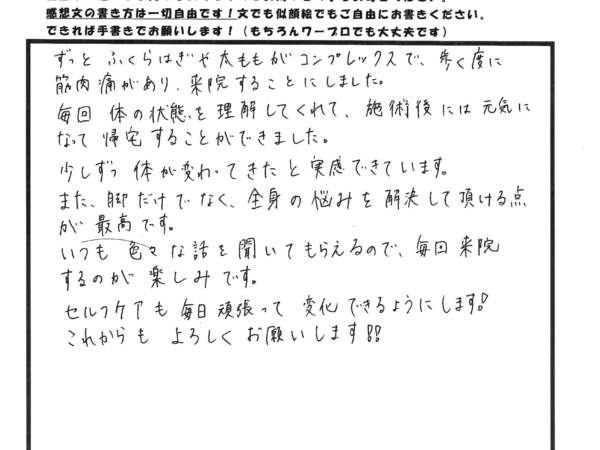 感想文の書き方は一切自由です！文でも似顔絵でもご自由にお書きください。
できれば手書きでお願いします！（もちろんワープロでも大丈夫です）
ずっと ふくらはぎや太ももがコンプレックスで、歩く度に
筋肉痛があり、来院することにしました。
毎回 体の状態を理解してくれて、施術後には元気に
なって帰宅することができました。
少しずつ 体が変わってきたと実感できています。
また、脚だけでなく、全身の悩みを解決して頂ける点
が 最高です。
いつも 色々な話を聞いてもらえるので、毎回来院
するのが 楽しみです。
セルフケアも毎日頑張って 変化できるようにします!
これからも よろしくお願いします!!